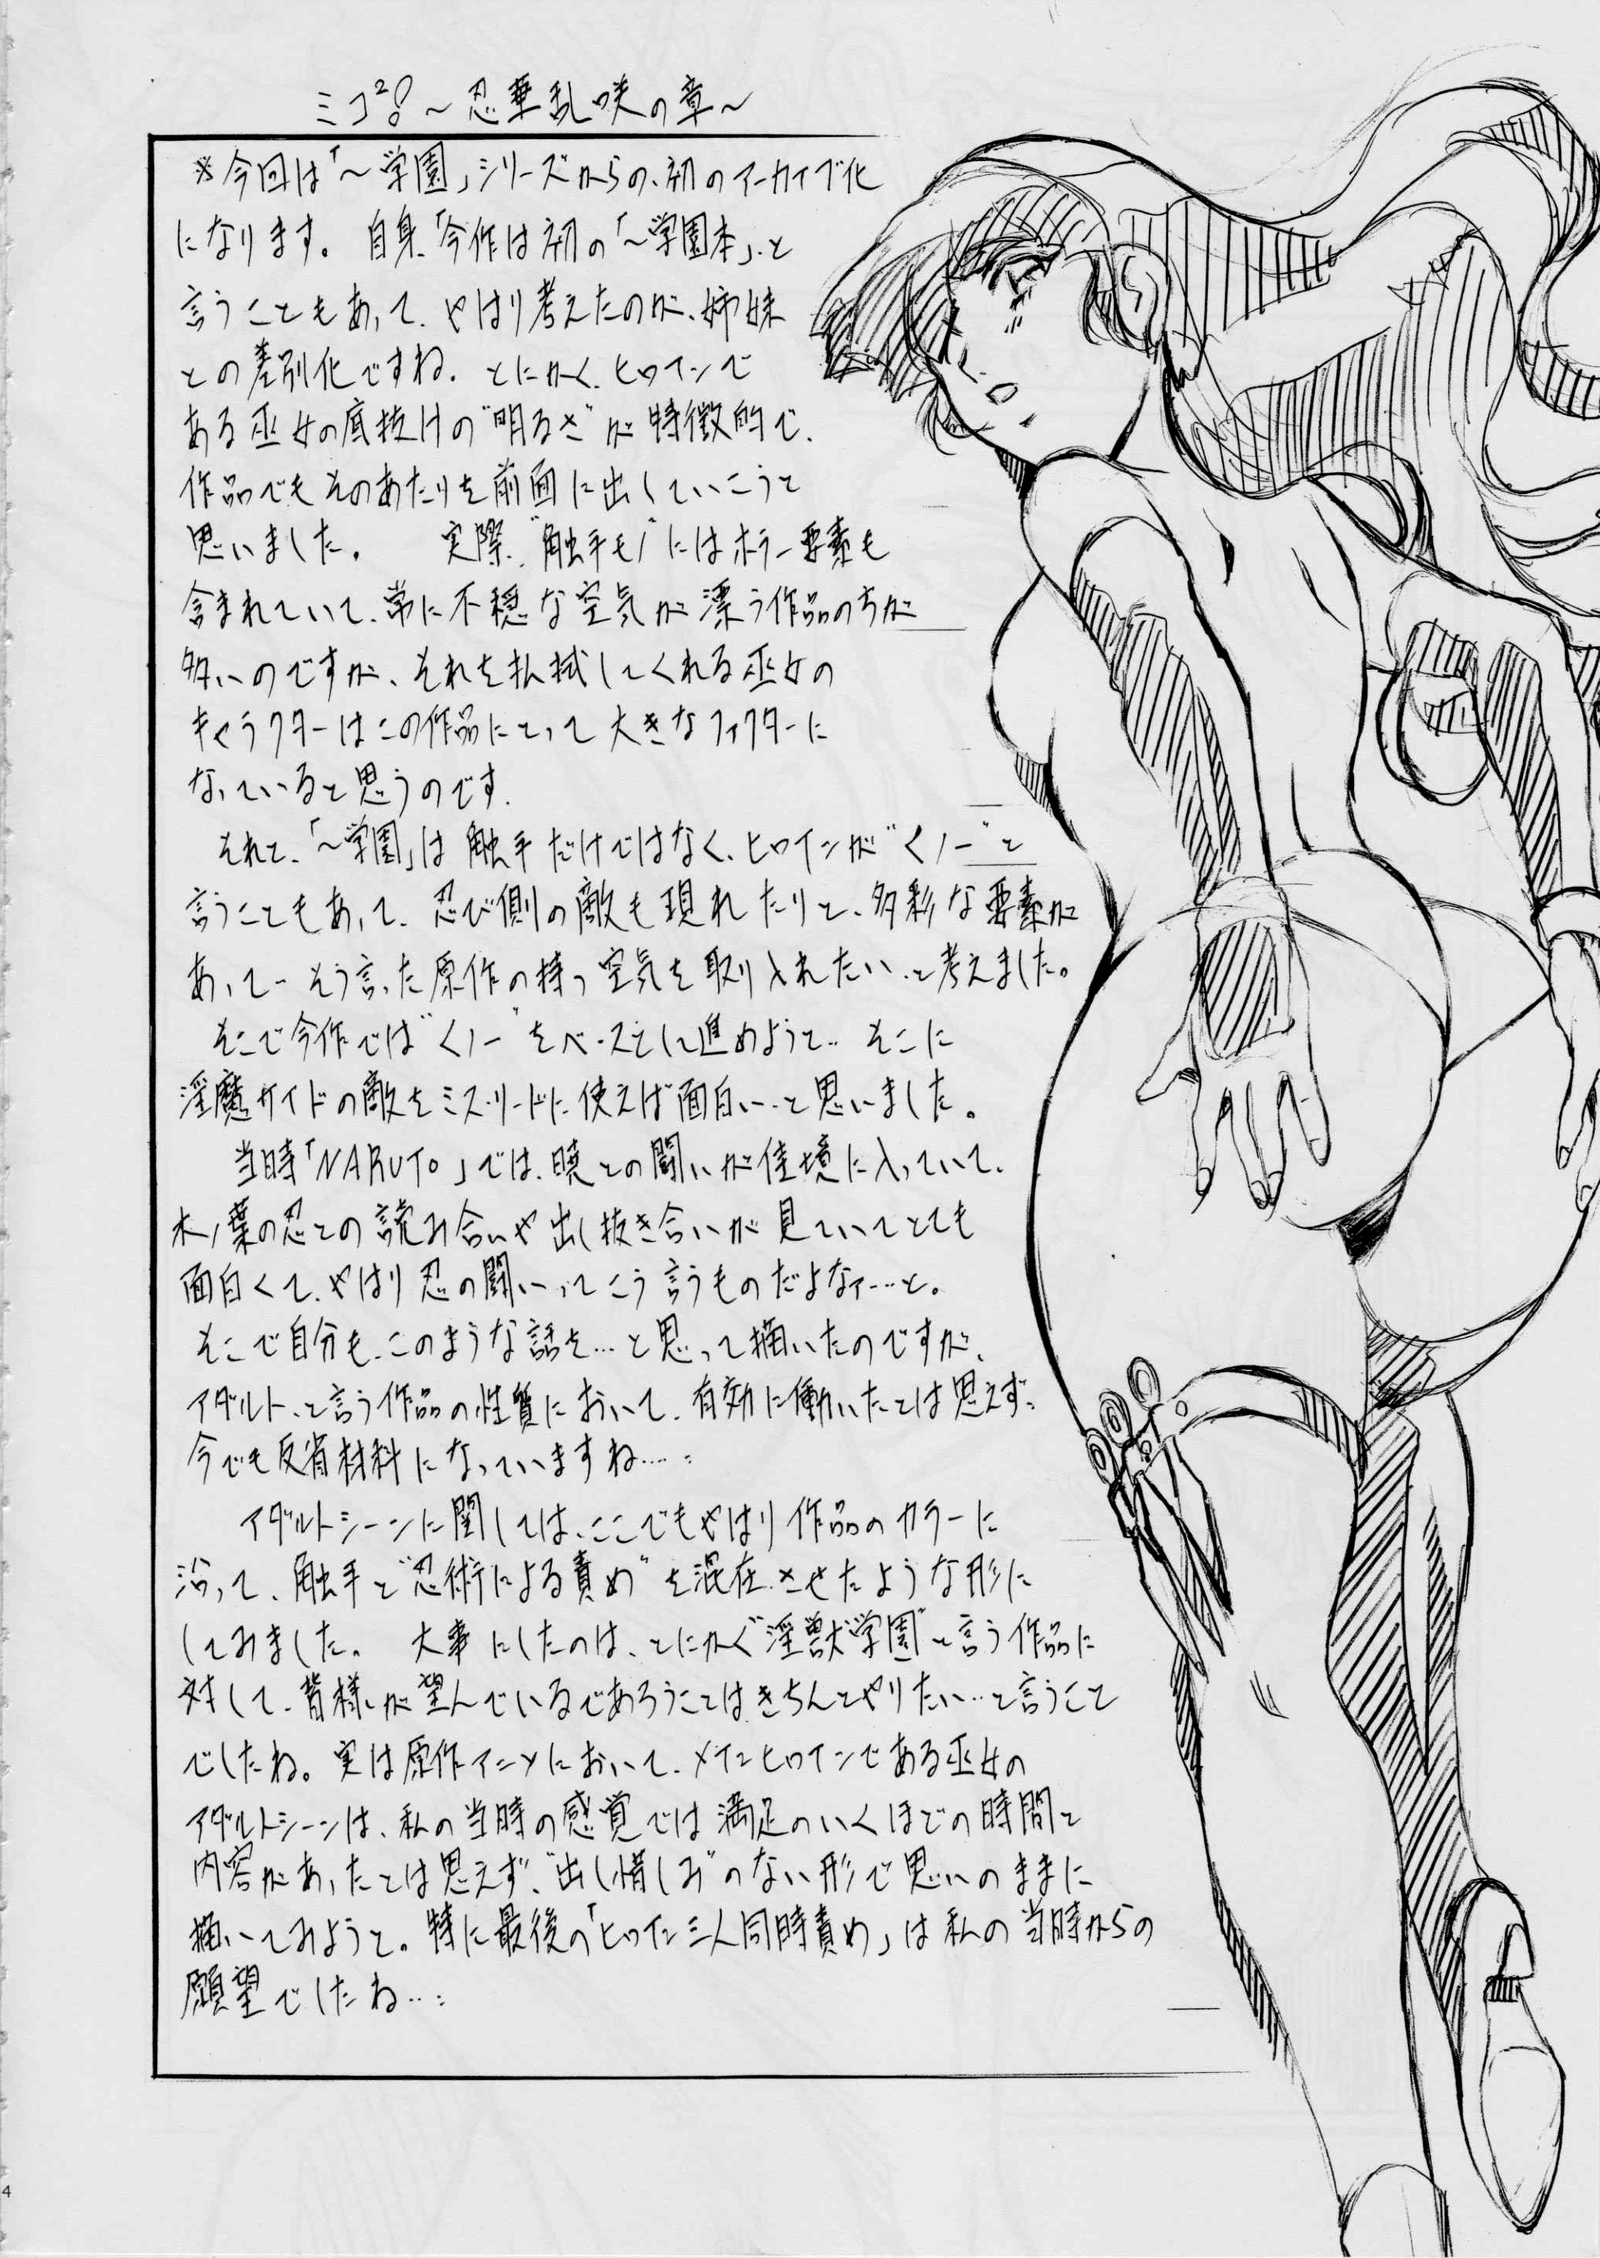 ミコ²!～忍華乱咲の章～
※今回は「～学園」シリーズからの、初のアーカイブ化
になります。自身、今作は初の「～学園本」と
言うこともあって、やはり考えたのが、姉妹
との差別化ですね。とにかく、ヒロインで
ある巫女の底抜けの"明るさ"が特徴的で、
作品でもそのあたりを前面に出していこうと
思いました。 実際、"触手モノ"にはホラー要素も
含まれていて、常に不穏な空気が漂う作品のちが
多いのですが、それを払拭してくれる巫女の
キャラクターはこの作品にとって大きなファクターに
なっていると思うのです。
それと、「～学園」は触手だけではなく、ヒロインが"くノ一"と
言うこともあって、忍び側の敵も現れたりと、多彩な要素が
あって… そう言った原作の持つ空気を取り入れたい、と考えました。
そこで今作では"くノ一"をベースとして進めようと… そこに
淫魔サイドの敵をミスリードに使えば面白い…と思いました。
当時「NARUTO」では、暁との闘いが佳境に入っていて、
木ノ葉の忍との読み合いや出し抜き合いが見ていてとても
面白くて、やはり忍の闘いってこう言うものだよなァ…と。
そこで自分も、このような話を…と思って描いたのですが、
アダルト、と言う作品の性質において、有効に働いたとは思えず…
今でも反省材料になっていますね…。
アダルトシーンに関しては、ここでもやはり作品のカラーに
沿って、触手と"忍術による責め"を混在させたような形に
してみました。 大事にしたのは、とにかく"淫獣学園"と言う作品に
対して、皆様が望んでいるであろうことはきちんとやりたい…と言うこと
でしたね。実は原作アニメにおいて、メインヒロインである巫女の
アダルトシーンは、私の当時の感覚では満足のいくほどの時間と
内容があったとは思えず、"出し惜しみ"のない形で思いのままに
描いてみようと。特に最後の「ヒロイン三人同時責め」は私の当時からの
願望でしたね…。
4